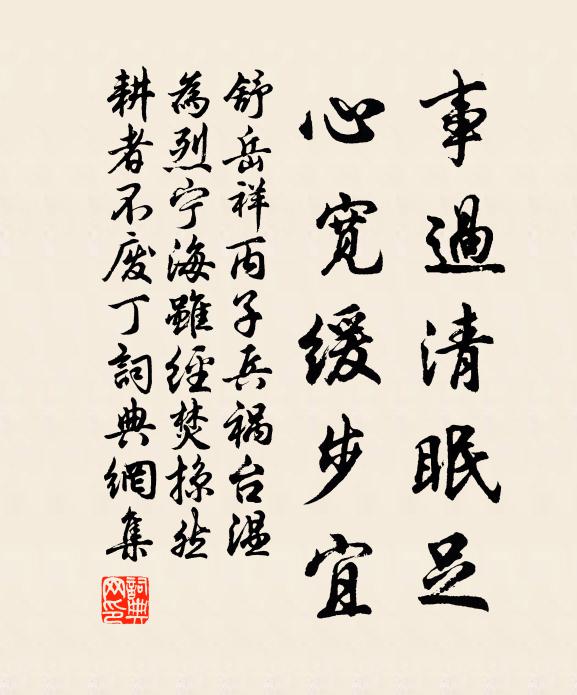 事過清眠足
心寬緩步宜
舒岳祥丙子兵祸台温
為烈宁海雖經焚掠然
耕者不废丁詞典網集
詞典网印